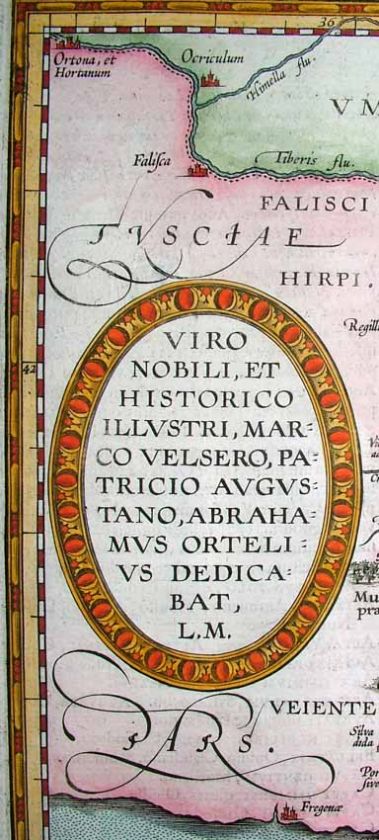 36
Ortona, et
Hortanum
Ocriculum
Himella flu.
VM
Falisca
Tiberis flu.
FALISCI
TVSCIAE
HIRPI.
Regill
42
VIRO
NOBILI, ET
HISTORICO
ILLVSTRI, MAR=
CO VELSERO, PA=
TRICIO AVGVS=
TANO, ABRAHA=
MVS ORTELI=
VS DEDICA=
BAT,
L.M.
Mu
pra
VEIENTE
PARS.
Silva
dida
Por
sive
Fregenæ